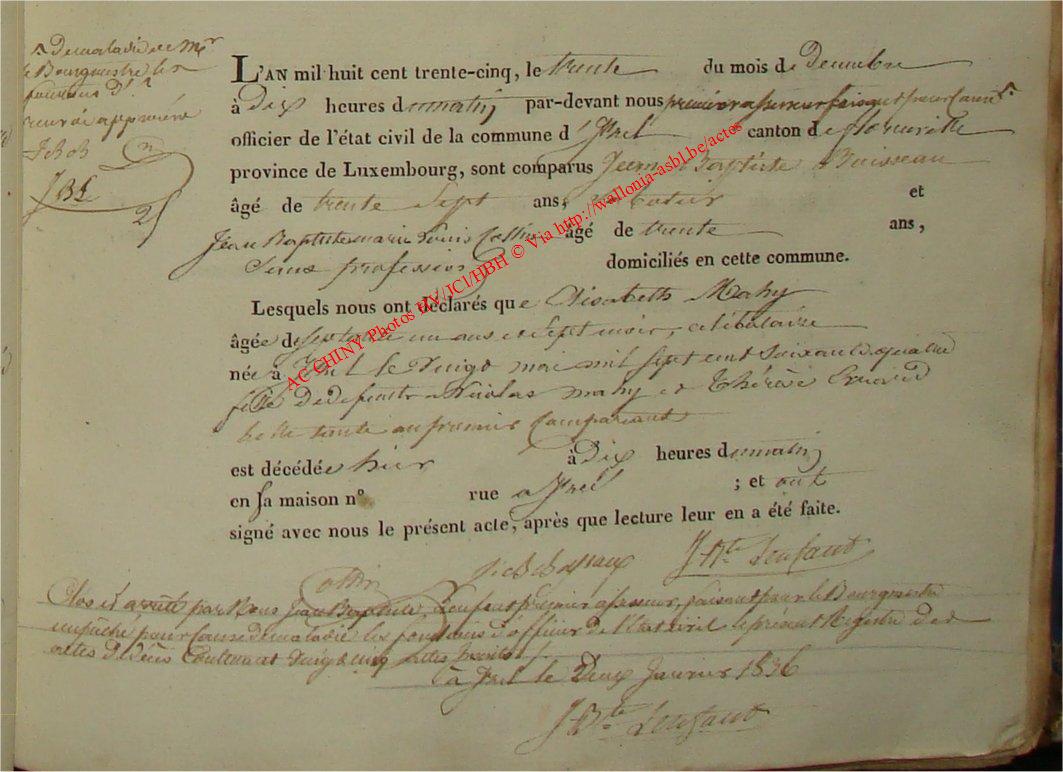 de maladie de Mr
le Bourgmestre les
fonctions d'
renvoi approuvé
JBL
L'AN mil huit cent trente-cinq, le trente du mois de Decembre
à Dix heures du matin par-devant nous premier assesseur faisant pour cause
officier de l'état civil de la commune d'Izel canton de florenville
province de Luxembourg, sont comparus Jean Baptiste Buisseau
âgé de trente Sept ans, et
Jean Baptiste marie Louis âgé de trente ans,
Sans profession domiciliés en cette commune.
Lesquels nous ont déclarés que Elisabeth Mahy
âgée de septante un ans et Sept mois, celibataire
née à Izel le Vingt mai mil Sept cent Soixante quatre
fille de defunts Nicolas mahy et Thérèse
tante au premier Comparant
est décédée hier à Dix heures du matin
en sa maison n° rue a Izel ; et ont
signé avec nous le présent acte, après que lecture leur en a été faite.
JBte Lenfant
Clos et arrêté par Nous Jean Baptiste Lenfant premier assesseur, faisant pour le Bourgmestre
empêché pour cause de maladie les fonctions d'officier de l'état civil le présent Registre des
actes de décès Contenant Vingt cinq actes inscrits
à Izel le Deux Janvier 1836
JBte Lenfant
AC CHINY Photos HV/JCl/HBH © Via http://wallonia-asbl.be/actes